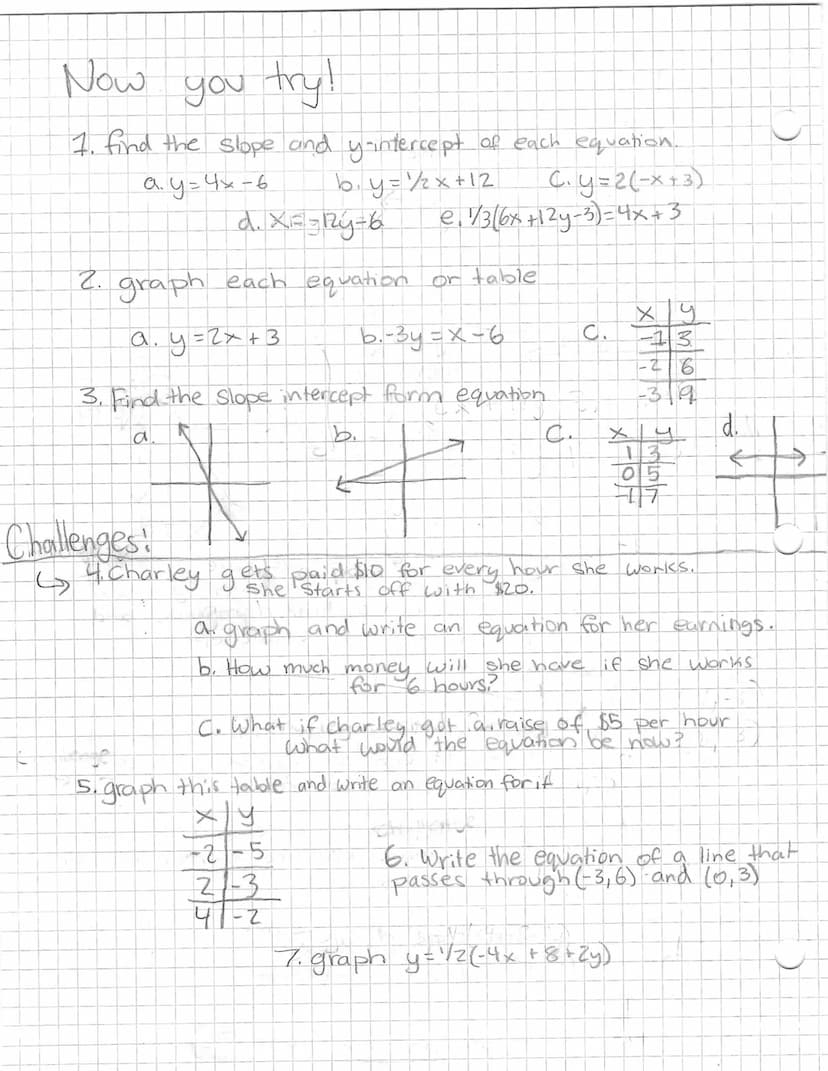 Now you try!
1. find the slope and y-intercept of each equation.
a. y=4x-6 b. y=1/2x+12 C. y=2(-x+3)
d. x=-12y-6 e. 1/3(6x+12y-3)=4x+3
2. graph each equation or table
a. y=2x+3 b. -3y=x-6 C. x | y
-1 | 3
-2 | 6
3. Find the slope intercept form equation -3 | 9
a. b. C. x | y d.
1 | 3
0 | 5
-1 | 7
Challenges:
4. Charley gets paid $10 for every hour she works.
She starts off with $20.
a. graph and write an equation for her earnings.
b. How much money will she have if she works
for 6 hours?
C. What if charley got a raise of $5 per hour
what would the equation be now?
5. graph this table and write an equation for it
x | y
-2 | -5
2 | -3
4 | -2
6. Write the equation of a line that
passes through (-3,6) and (0,3)
7. graph y=1/2(-4x+8+2y)